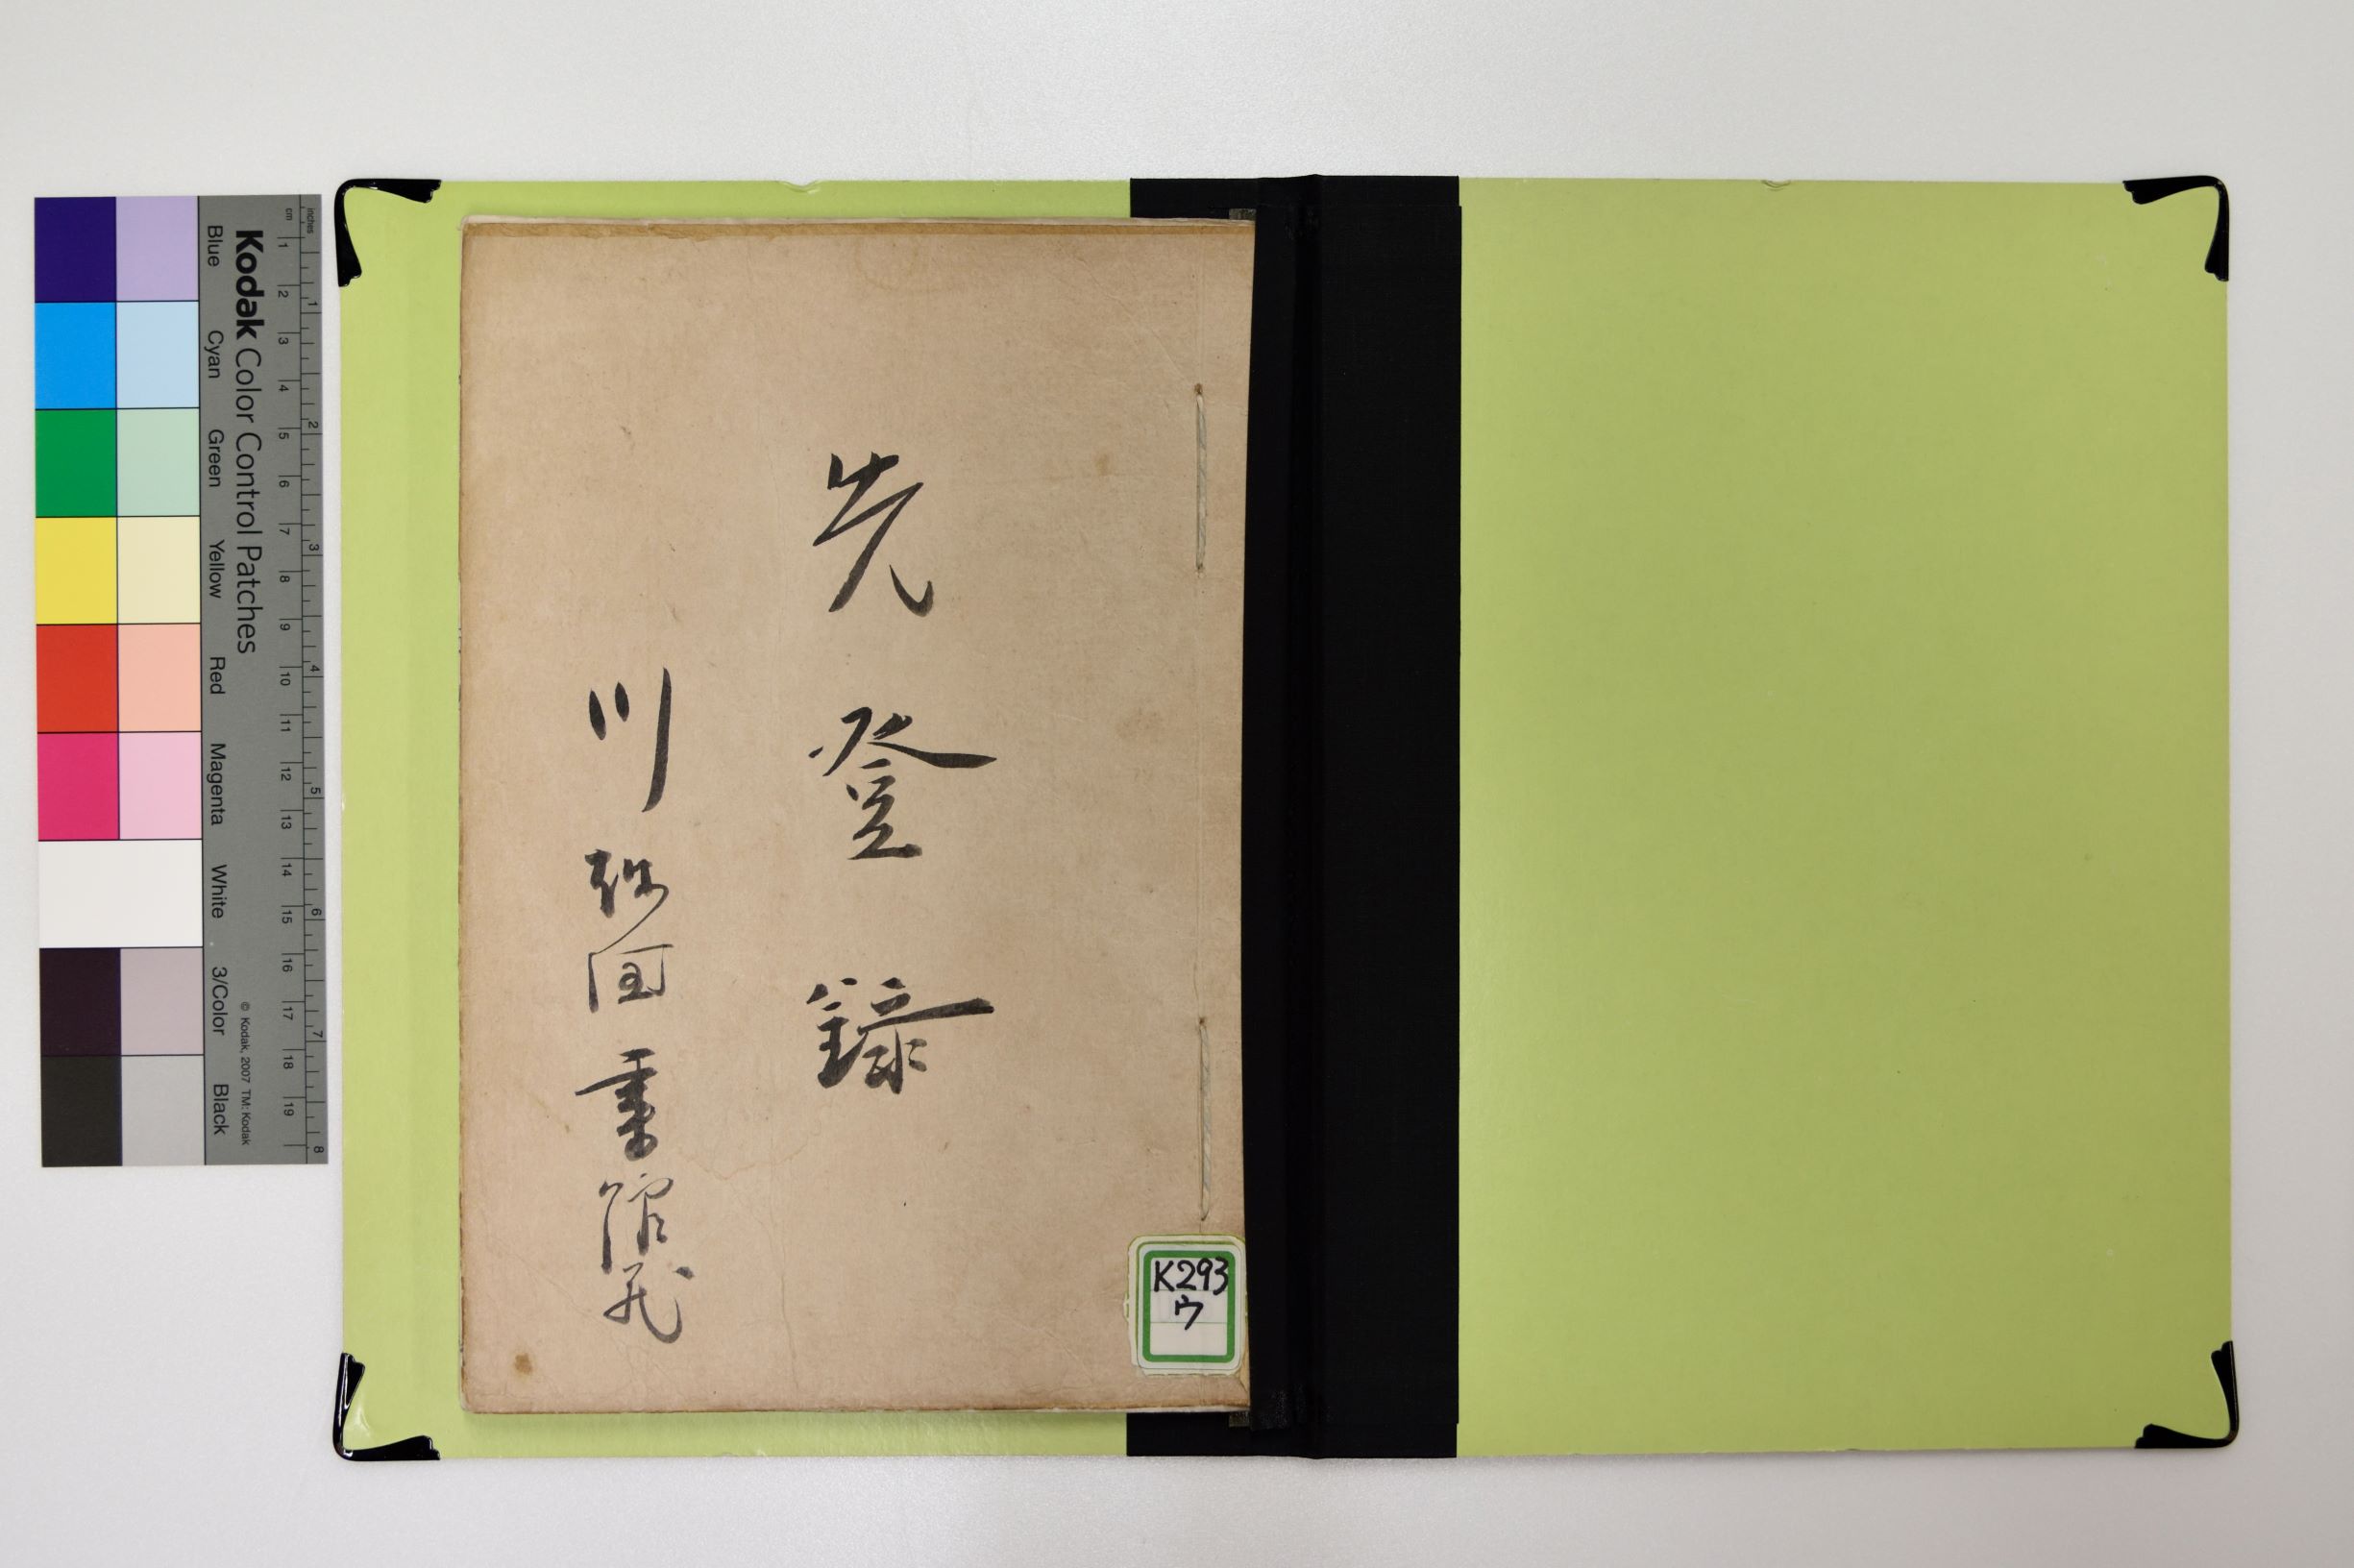 先登録
川弥国書館蔵
K293
ウ
Kodak Color Control Patches
Blue Cyan Green Yellow Red Magenta White 3/Color Black
© Kodak, 2007 TM: Kodak
cm 1 2 3 4 5 6 7 8 9 10 11 12 13 14 15 16 17 18 19
inches 1 2 3 4 5 6 7 8